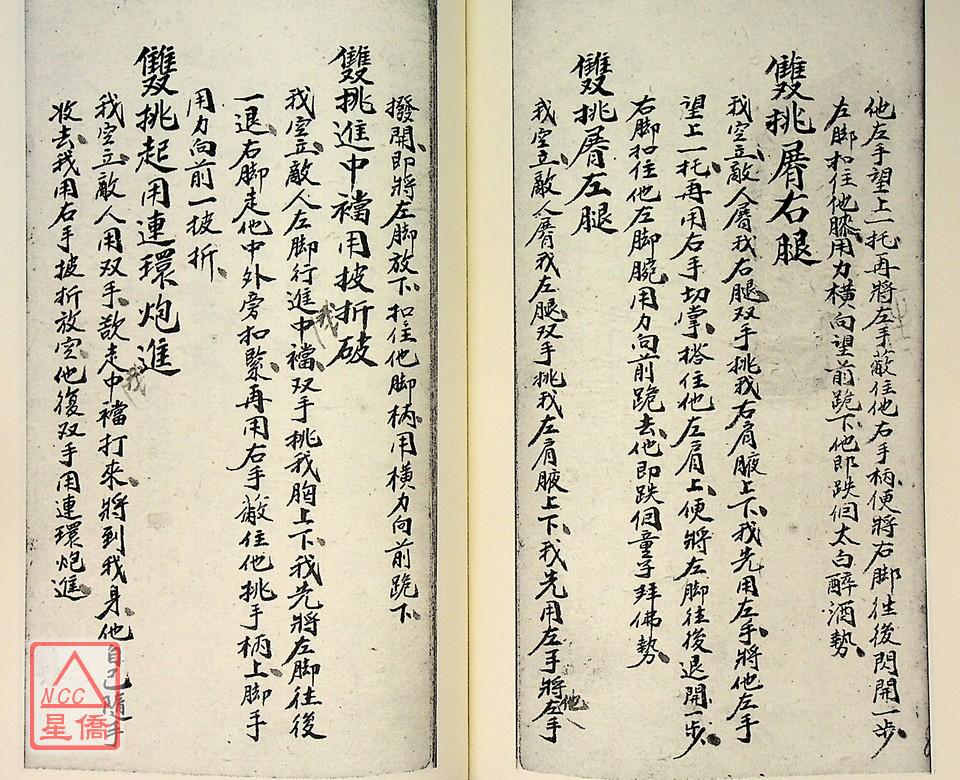 他左手望上一托再將左手蔽住他右手柄便將右脚徃後閃開一步
左脚扣住他膝用力橫向望前跪下他即跌侗太白醉酒勢
雙挑屠右腿
我空立敵人屠我右腿双手挑我右肩腋上下我先用左手將他左手
望上一托再用右手切掌搭住他左肩上便將左脚徃後退開一步
右脚扣住他左脚腕用力向前跪去他即跌侗童子拜佛勢
雙挑屠左腿
我空立敵人屠我左腿双手挑我左肩腋上下我先用左手將他左手
撥開即將左脚放下扣住他脚柄用橫力向前跪下
雙挑進中襠用披折破
我空立敵人左脚行進中襠双手挑我胸上下我先將左脚徃後
一退右脚走他中外旁扣緊再用右手蔽住他挑手柄上脚手
用力向前一披折
雙挑起用連環炮進
我空立敵人用双手欲走中襠打來將到我身他自己隨手
收去我用右手披折放空他復双手用連環炮進
我
我
NCC
星僑